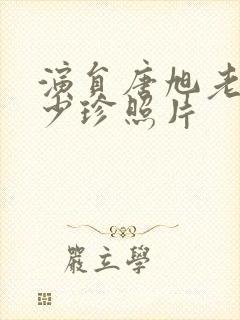 演員唐旭老
少珍照片
嚴立學